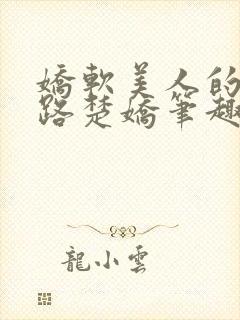 嬌軟美人的
路楚嬌筆趣
龍小雲